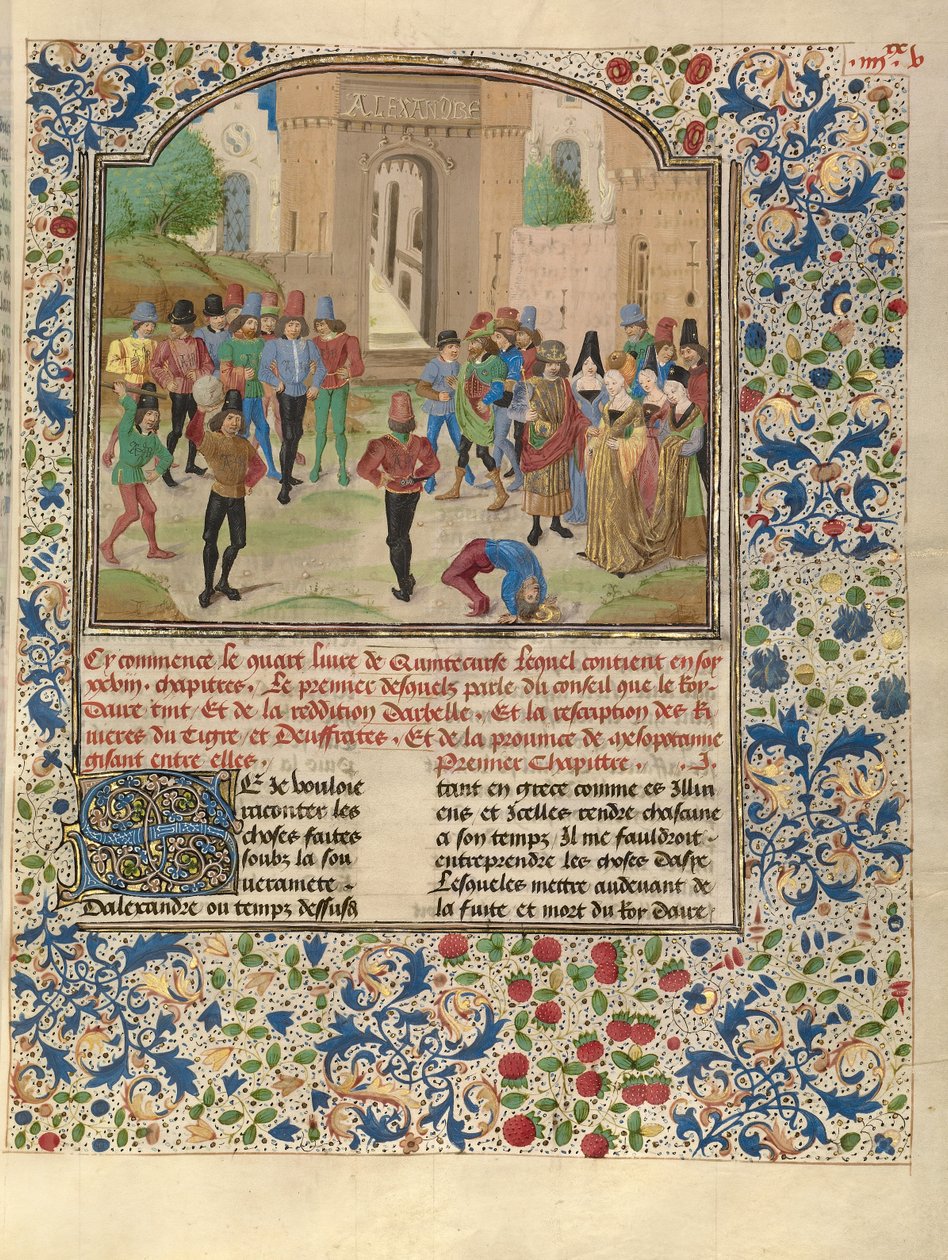 iiii xx v
ALEXANDRE
Cy commence le quart livre de Quintecurse lequel contient en soy
xxviii. chapitres. Le premier desquelz parle du conseil que le Roy
Daire tint, Et de la reddition Darbelle. Et la rescription des Ri
uieres du Tigre et Deuffrates, Et de la prouince de Mesopotamie
gisant entre elles. Premier Chapittre. .I.
E Je vouloie
raconter les
choses faites
soubz la sou
ueramete
Dalexandre ou temps dessusd
tant en grece comme es Illiri
ens et Icelles rendre chascune
a son temps Il me fauldroit
entreprendre les choses Dasye
Lesqueles mettre audeuant de
la fuite et mort du Roy Daire